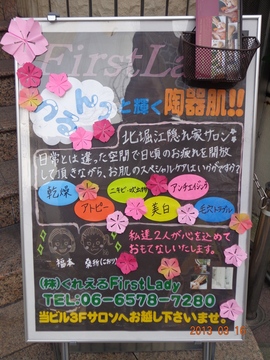 First Lady
うるんっと輝く陶器肌!!
北堀江隠れ家サロン
日常とは違った空間で日頃のお疲れを開放
して頂きながら、お肌のスペシャルケアはいかがですか?
乾燥
アンチエイジング
アトピー
美白
毛穴トラブル
私達2人が心を込めて
おもてなしいたします。
福本
(株)くれえるFirst Lady
TEL:06-6578-7280
当ビル3Fサロンへお越し下さいませ。
2013 03 10